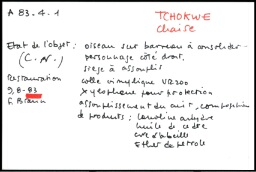 A 83.4.1
TCHOKWE
chaise
Etat de l'objet : oiseau sur barreau à consolider
(C.N.) personnage côté droit
siège à assouplir
Restauration colle vinylique VR200
9.8-83 xylophène pour protection
F. Braun assouplissement du cuir, composition
de produits : lanoline anhydre
huile de cèdre
cire d'abeille
Ether de pétrole